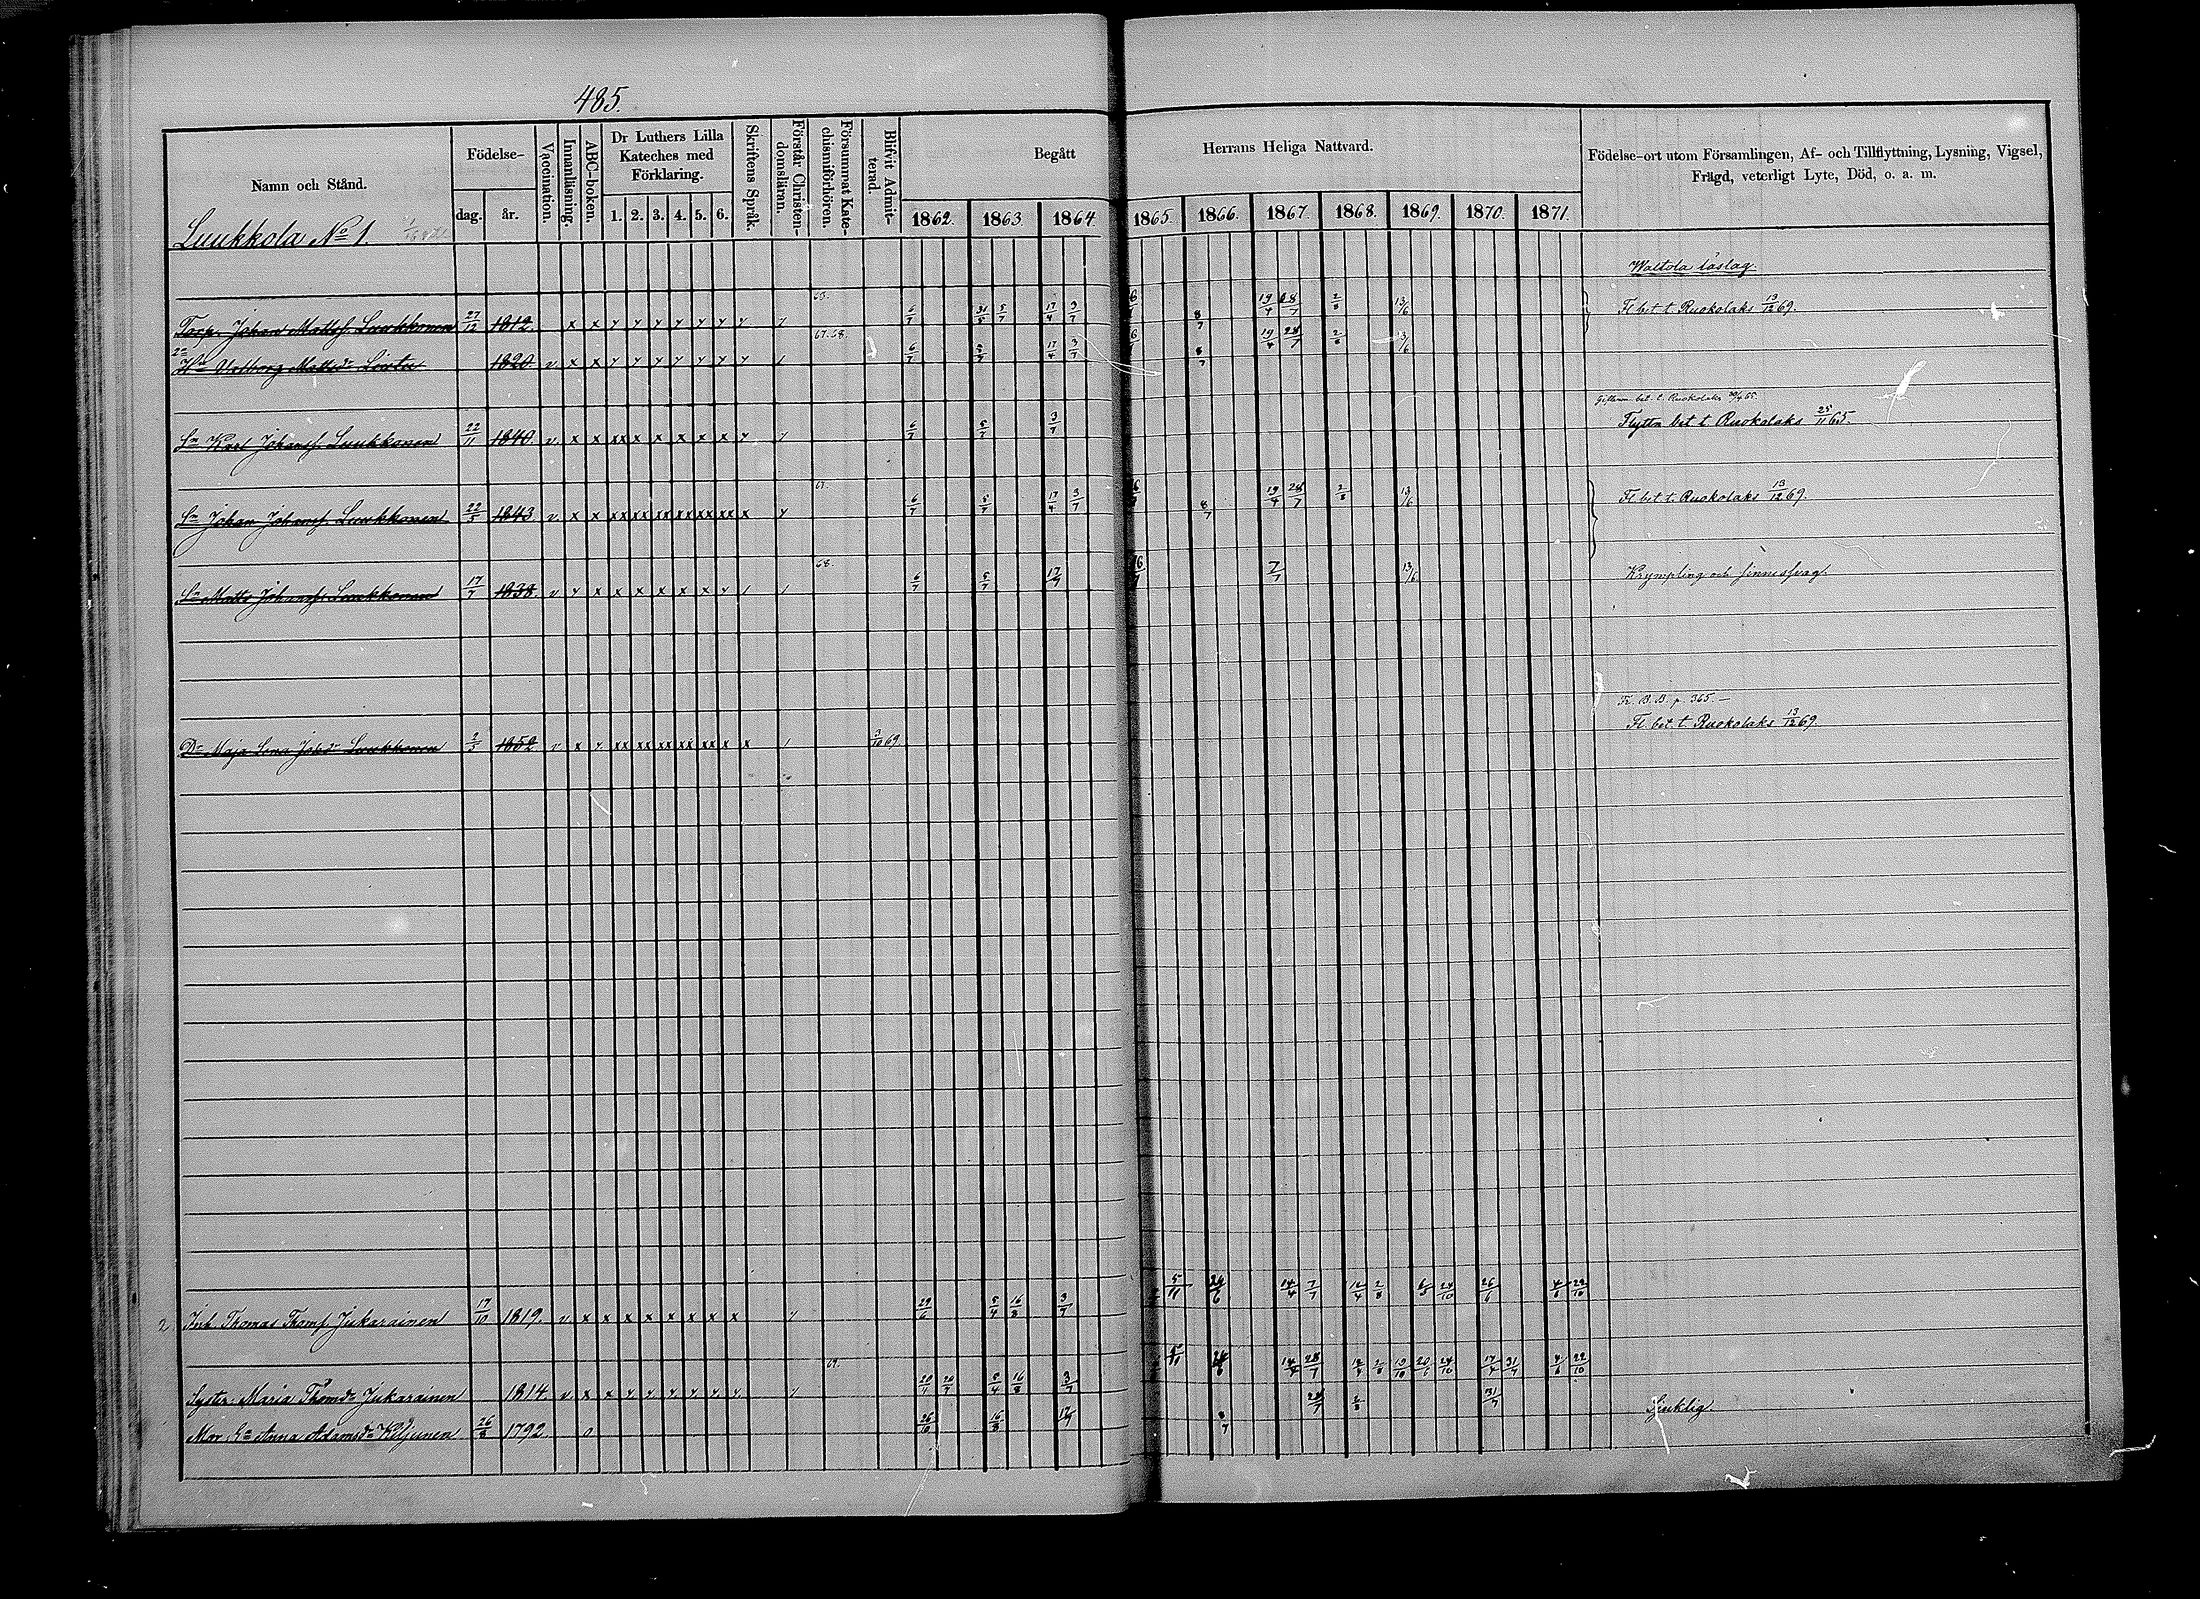 485.
Namn och Stånd.
Födelse-
dag. år.
Vaccination.
Innanläsning.
ABC-boken.
Dr Luthers Lilla
Kateches med
Förklaring.
1. 2. 3. 4. 5. 6.
Skriftens Språk.
Förstår Christen-
domsläran.
Försummat Kate-
chismiförhören.
Blifvit Admit-
terad.
Begått Herrans Heliga Nattvard.
1862. 1863 1864 1865. 1866. 1867. 1868. 1869. 1870. 1871.
Födelse-ort utom Församlingen, Af- och Tillflyttning, Lysning, Vigsel,
Frägd, veterligt Lyte, Död, o. a. m.
Luukkola No 1.
Torp. Johan Mattss. Luukkonen 27/12 1812. x x y y y y y y y y 6/7 31/5 5/7 17/4 3/7 8/7 19/4 28/7 2/8 13/6 Fl. bet. t. Ruokolaks 13/12 69.
67.68.
2a Hu Valborg Mattsdr 1820. v x x y y y y y y y 6/7 5/7 17/4 3/7 8/7 19/4 28/7 2/8 13/6
bet. t. Ruokolaks
Sn Karl Johanss. Luukkonen 22/11 1840. v x x xx x x x x x y y 6/7 5/7 3/7 Flyttn bet t. Ruokolaks 25/11 65.
67.
Sn Johan Johanss. Luukkonen 22/5 1843. v x x xx xx xx xx xx xx x y 6/7 5/7 17/4 3/7 8/7 19/4 28/7 2/8 13/6 Fl. bet. t. Ruokolaks 13/12 69.
68.
Sn Matts Johanss. Luukkonen 17/7 1838. v y x x x x x x y 6/7 5/7 17/7 7/7 13/6 Krympling och sinnessvag.
Fr. B. B. p. 365.
Dr Maja Lena Johdr Luukkonen 2/5 1852 v x y xx xx xx xx xx x x 3/10 69. Fl. bet. t. Ruokolaks 13/12 69.
2 Inh. Thomas Thoms. Jukarainen 17/10 1819. v x x x x x x x x y 29/6 5/4 16/8 3/7 5/11 24/6 14/4 7/7 12/4 2/8 24/10 26/6 4/6 22/10
69.
Syster Maria Thomdr Jukarainen 1814. v x x y y y y y y y 20/7 5/4 16/8 3/7 5/11 24/6 14/4 28/7 12/4 2/8 24/10 17/4 31/7 4/6 22/10
Mor Ea Anna Adamsdr Kiljunen 26/8 1792. o 26/10 16/8 8/7 28/7 2/8 31/7 Sjuklig.